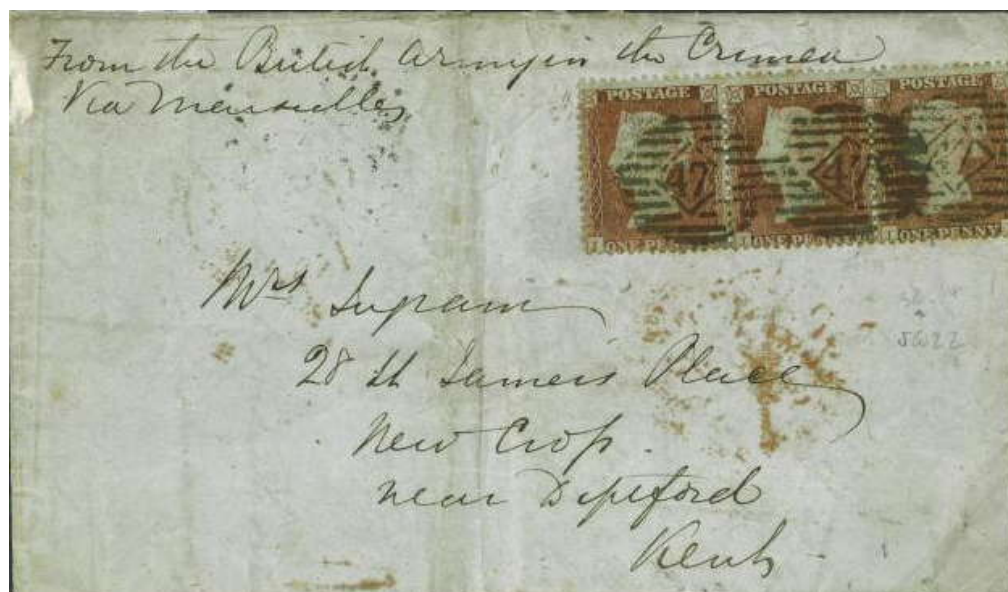 From the British army in the Crimea
Via Marseilles
POSTAGE POSTAGE POSTAGE
47 47
ONE PENNY ONE PENNY ONE PENNY
Mrs Ingram
28 St James's Place
New Cross.
near Deptford
Kent